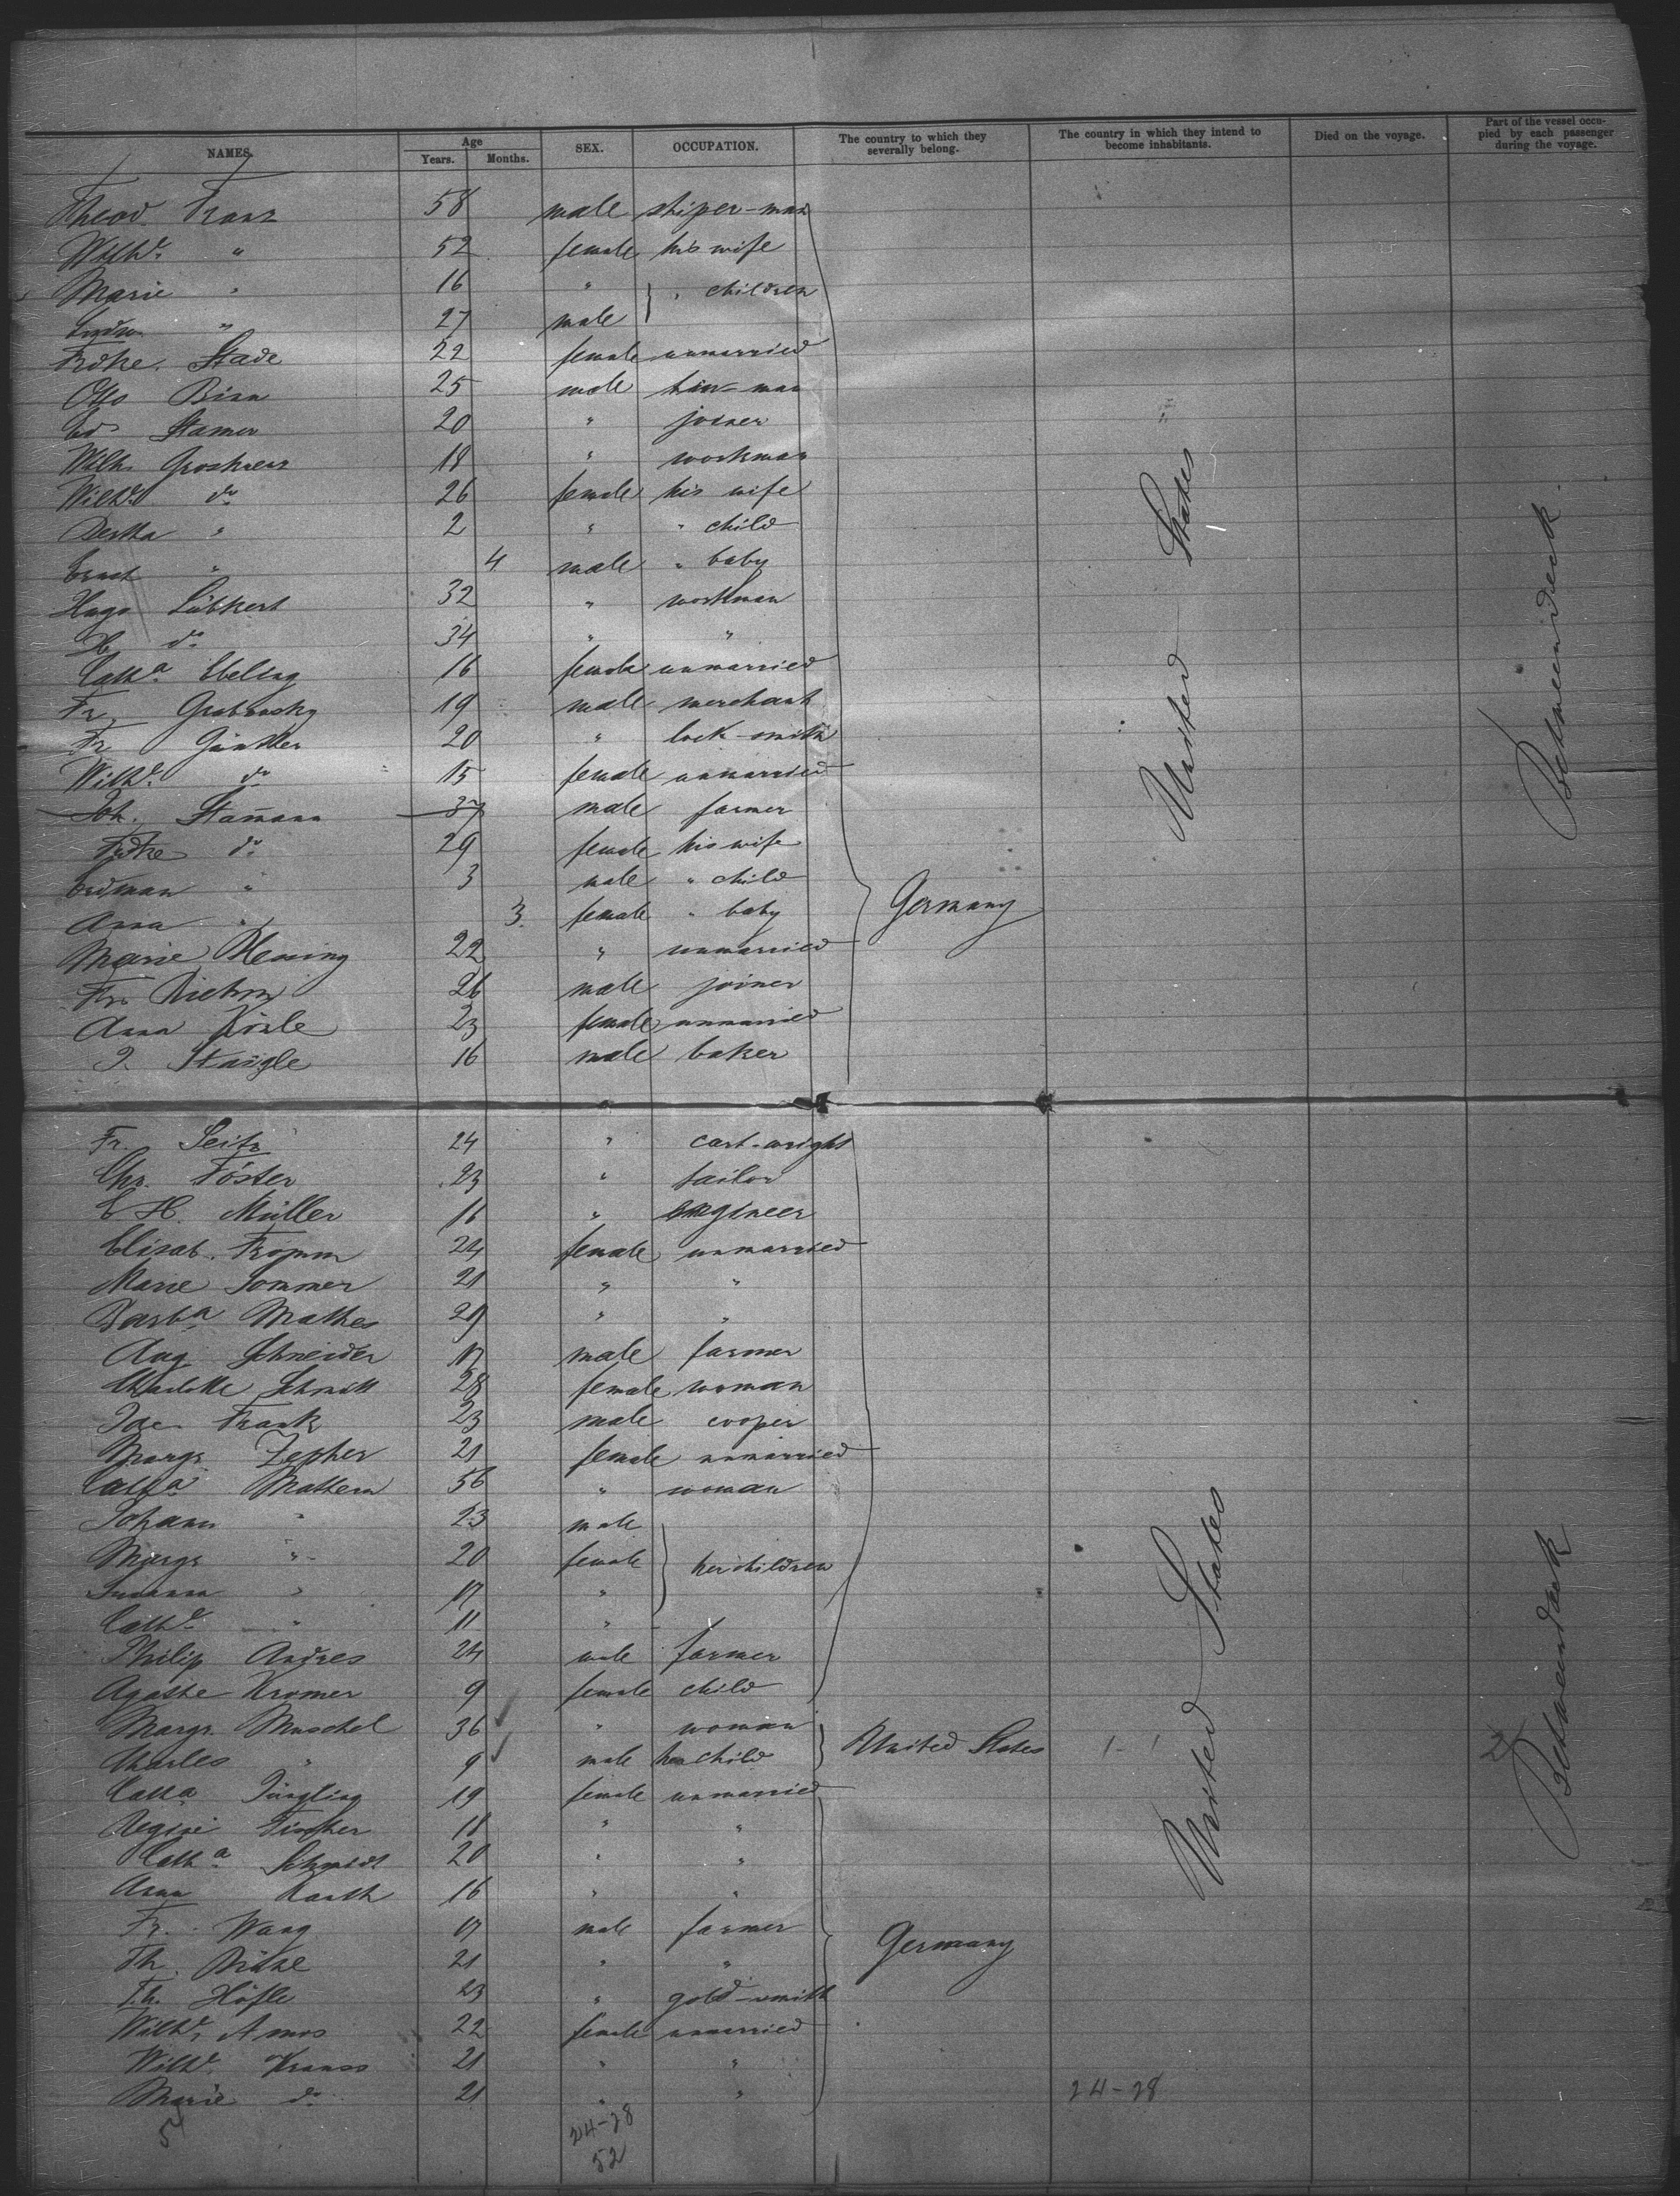 NAMES. Age Years. Months. SEX. OCCUPATION. The country to which they severally belong. The country in which they intend to become inhabitants. Died on the voyage. Part of the vessel occupied by each passenger during the voyage.
Theod. Franz 58 male
Wilhe. " 52 female his wife
Marie " 16 " " children
" 27 male
Fridke. Stade 22 female unmarried
Otto 25 male
Ed. Stamer 20 " joiner
Wilh. 18 " workman
Wilhe do 26 female his wife
Bertha " 2 " " child
Ernst " 4 male " baby
Hugo Lübkert 32 " workman
do 34 " "
Catha. Ebeling 16 female unmarried
Fr. Grabowsky 19 male merchant
Fr. Günther 20 " lock-smith
Wilhe. do 15 female unmarried
Joh. Stamann 37 male farmer
Fridke do 29 female his wife
Erdman " 3 male " child
Anna " 3 female " baby
Marie 22 " unmarried
Fr. 26 male joiner
Anna Rösle 23 female unmarried
J. Staigle 16 male baker
Germany
United States
Betweendeck
Fr. Seitz 24 " cart-wright
Chr. Föster 23 " tailor
E. H. Müller 16 " engineer
Elisab. Fromm 24 female unmarried
Marie Sommer 21 " "
Barba. Mathes 29 " "
Aug Schneider 17 male farmer
Charlotte Schmitt 28 female woman
Jac. Frank 23 male cooper
Margr. Zepher 21 female unmarried
Catha Mathern 56 " woman
Johann " 23 male
Margr " 20 female her children
Susanna " 17 "
Cathe " 11 "
Philip Andres 24 male farmer
Agathe Kromer 9 female child
Margr. Muschel 36 " woman
Charles " 9 male her child United States 1 - 1 2
Catha Jüngling 19 female unmarried
Regine Fischer 18 " "
Catha. Schmidt 20 " "
Anna Rauth 16 " "
Fr. Wang 17 male farmer
Th. 21 " "
Th. Höfle 23 " gold-smith
Wilhe. Amos 22 female unmarried
Wilhe. Krauss 21 " "
Marie do 21 " "
Germany
United States
Betweendeck
24-28
24-28
52